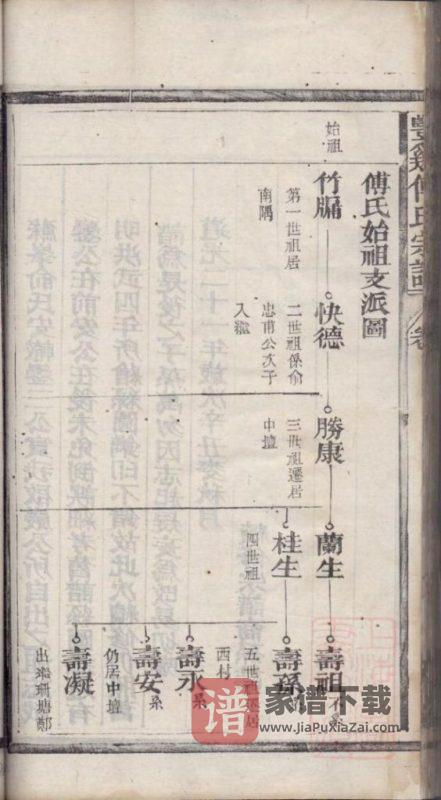 傅氏始祖支派圖
始祖
竹牖
第一世祖居
南隅
快德
二世祖係俞
忠甫公次子
入繼
勝康
三世祖遷居
中壇
蘭生
桂生
四世祖
壽祖
壽孫
五世祖遷居
西村
壽永
系
壽安
系
仍居中壇
壽凝
出繼珊塘鄭
谱
家谱下载
www.jiaPuXiaZai.com